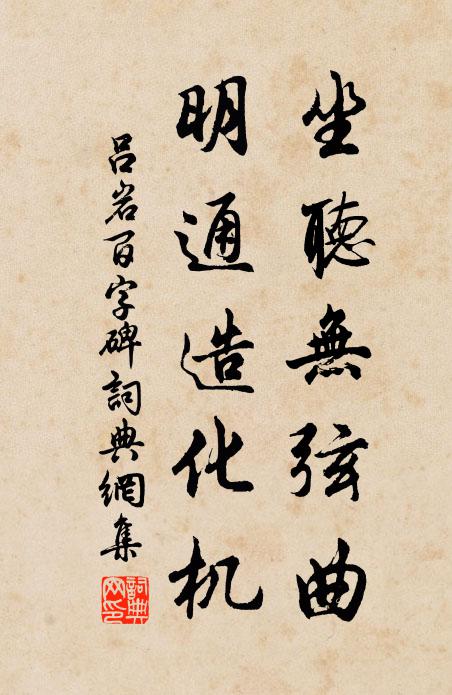 坐聽無弦曲
明通造化机
吕岩百字碑詞典網集
詞典網印